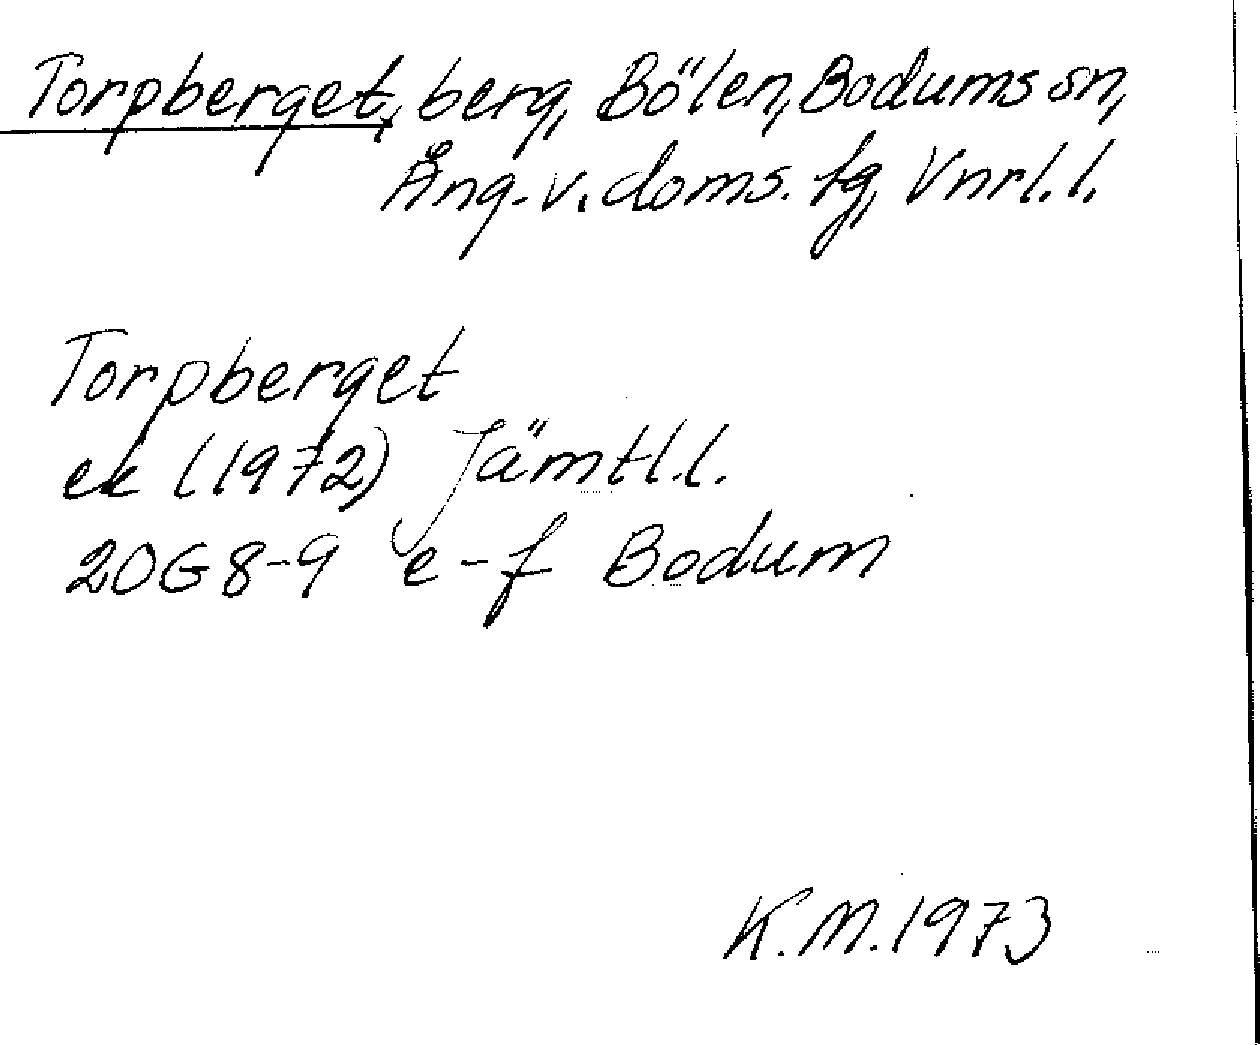 Torpberget, berg, Bölen, Bodums sn,
Ång. v. doms. fg, Vnrl. l.
Torpberget
ek (1972) Jämtl. l.
20G 8-9 e-f Bodum
K.M. 1973